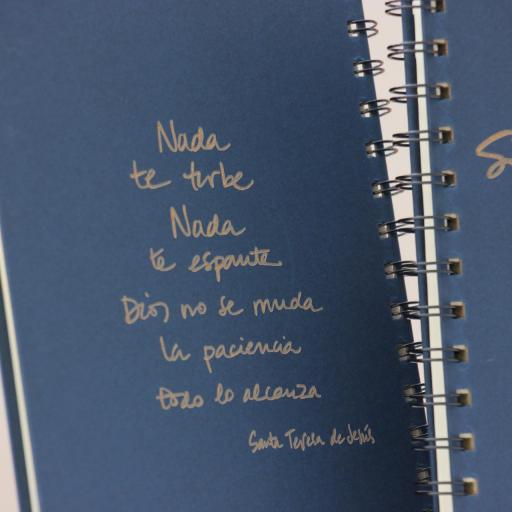 Nada
te turbe
Nada
te espante
Dios no se muda
la paciencia
todo lo alcanza
Santa Teresa de Jesús